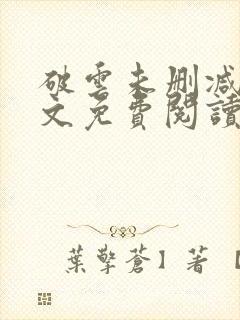 破雲未删減
文免費閱讀
葉擎蒼】著【